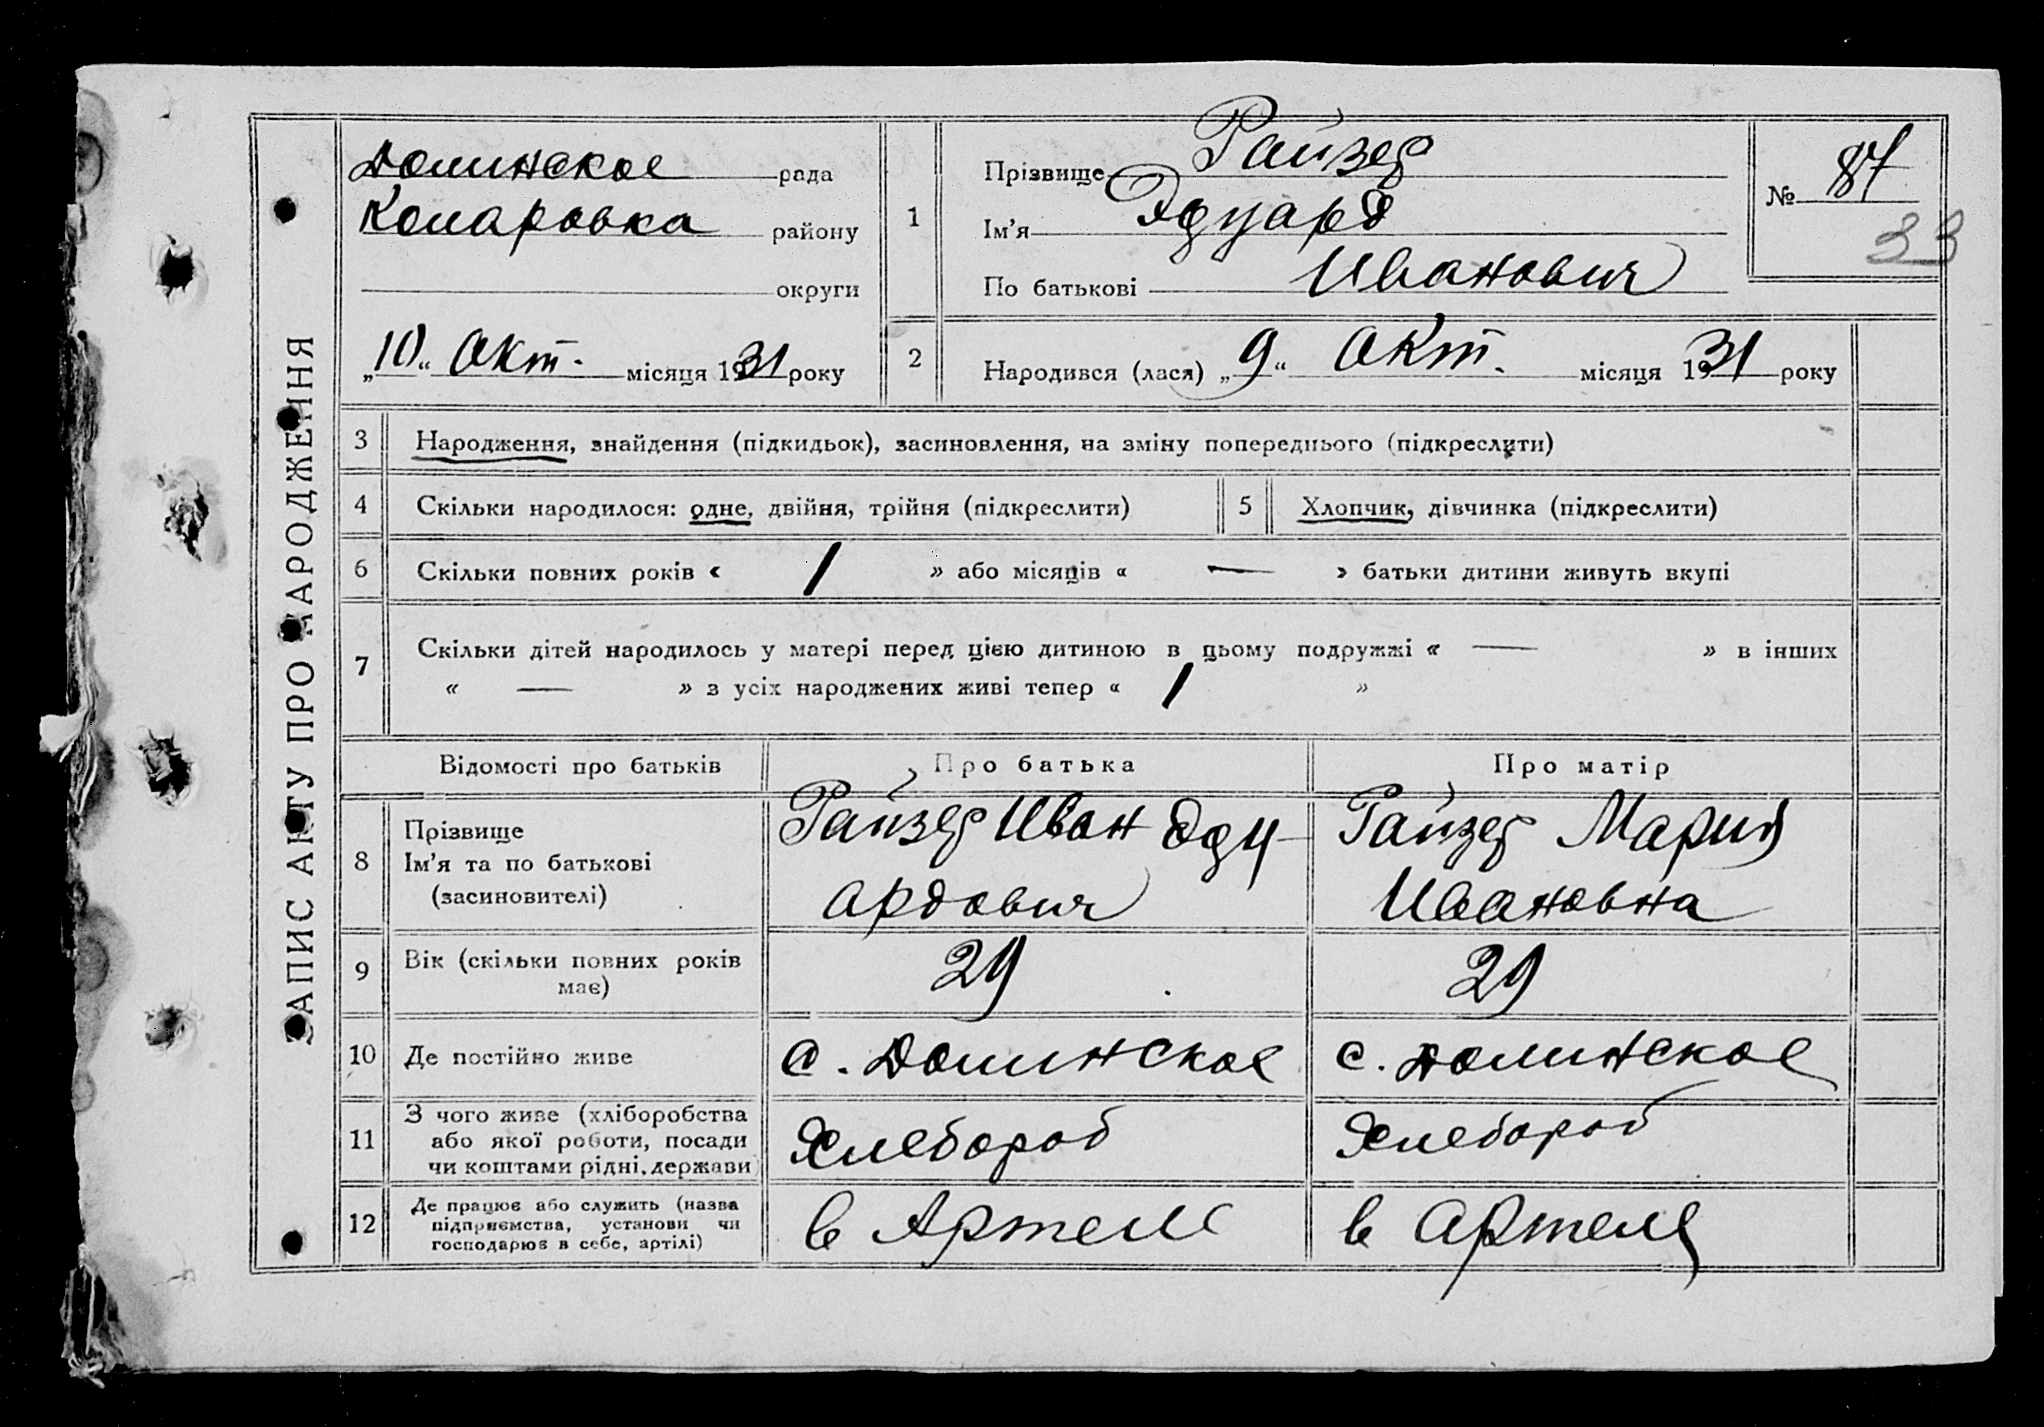 ЗАПИС АКТУ ПРО НАРОДЖЕННЯ
Долинское рада
Комаровка району
округи
„10“ Окт. місяця 1931 року
1
Прізвище Райзер
Ім'я Эдуард
По батькові Иванович
№ 87
33
2
Народився (лася) „9“ Окт. місяця 1931 року
3 Народження, знайдення (підкидьок), засиновлення, на зміну попереднього (підкреслити)
4 Скільки народилося: одне, двійня, трійня (підкреслити) 5 Хлопчик, дівчинка (підкреслити)
6 Скільки повних років « 1 » або місяців « — » батьки дитини живуть вкупі
7 Скільки дітей народилось у матері перед цією дитиною в цьому подружжі « — » в інших
« — » з усіх народжених живі тепер « 1 »
Відомості про батьків Про батька Про матір
8
Прізвище
Ім'я та по батькові
(засиновителі)
Райзер Иван Эду-
ардович
Райзер Мария
Ивановна
9
Вік (скільки повних років
має)
29
29
10 Де постійно живе с. Долинское с. Долинское
11
З чого живе (хліборобства
або якої роботи, посади
чи коштами рідні, держави)
Хлебороб
Хлебороб
12
Де працює або служить (назва
підприємства, установи чи
господарює в себе, артілі)
в Артеле
в Артеле